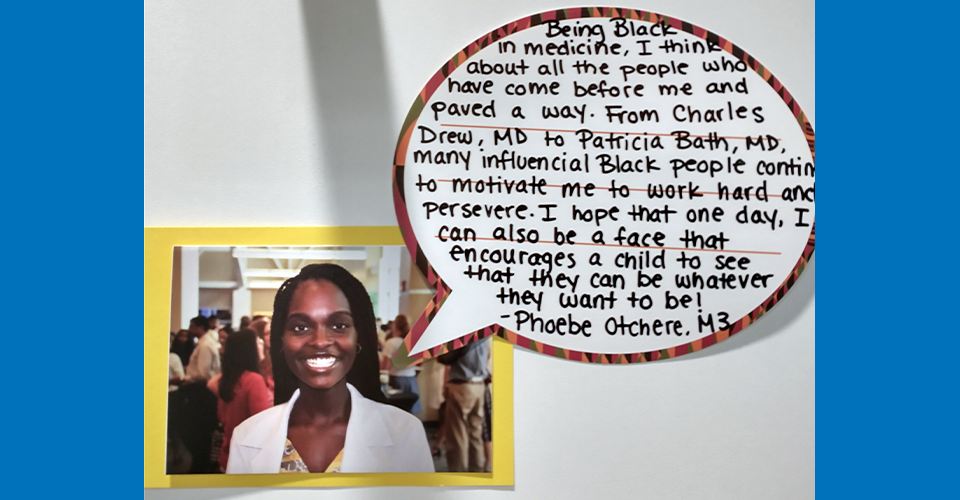 Being Black
in medicine, I think
about all the people who
have come before me and
paved a way. From Charles
Drew, MD to Patricia Bath, MD,
many influencial Black people contin
to motivate me to work hard and
persevere. I hope that one day, I
can also be a face that
encourages a child to see
that they can be whatever
they want to be!
-Phoebe Otchere, M3